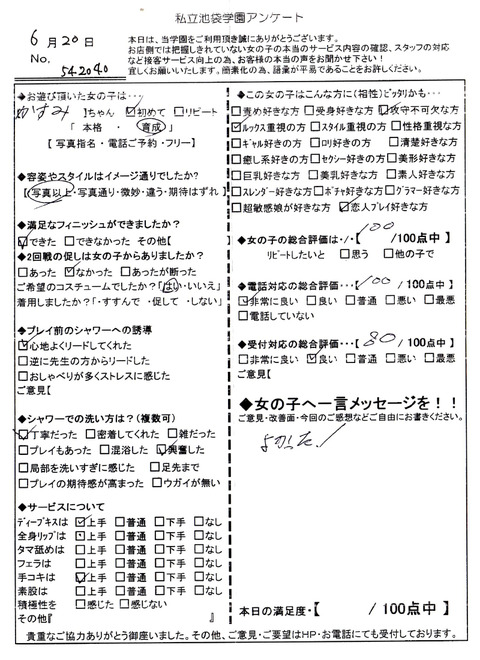 私立池袋学園アンケート
6月20日
No. 542040
本日は、当学園をご利用頂き誠にありがとうございます。
お店側では把握しきれていない女の子の本当のサービス内容の確認、スタッフの対応
など接客サービス向上の為、お客様の本当の声をお聞かせ下さい！
宜しくお願いいたします。簡素化の為、語彙が平易であることをお許しください。
◆お遊び頂いた女の子は…
かすみ 】ちゃん ☑初めて □リピート
「 本格 ・ 育成 」
【 写真指名・電話ご予約・フリー】
◆容姿やスタイルはイメージ通りでしたか?
【写真以上・写真通り・微妙・違う・期待はずれ】
◆満足なフィニッシュができましたか?
☑できた □できなかった その他【
◆2回戦の促しは女の子からありましたか?
□あった ☑なかった □あったが断った
ご希望のコスチュームでしたか?「はい・いいえ」
着用しましたか?「・すすんで ・促して ・しない」
◆プレイ前のシャワーへの誘導
☑心地よくリードしてくれた
□逆に先生の方からリードした
□おしゃべりが多くストレスに感じた
ご意見【
◆シャワーでの洗い方は?（複数可）
☑丁寧だった □密着してくれた □雑だった
□プレイもあった □混浴した ☑興奮した
□局部を洗いすぎに感じた □足先まで
□プレイの期待感が高まった □ウガイが無い
◆サービスについて
ディープキスは ☑上手 □普通 □下手 □なし
全身リップは □上手 □普通 □下手 □なし
タマ舐めは □上手 □普通 □下手 □なし
フェラは □上手 □普通 □下手 □なし
手コキは ☑上手 □普通 □下手 □なし
素股は □上手 □普通 □下手 □なし
積極性を □感じた □感じない
その他『 』
◆この女の子はこんな方に（相性）ピッタリかも…
□責め好きな方 □受身好きな方 ☑攻守不可欠な方
☑ルックス重視の方 □スタイル重視の方 □性格重視な方
□ギャル好きの方 □ロリ好きの方 □清楚好きな方
□癒し系好きの方 □セクシー好きの方 □美形好きな方
□巨乳好きな方 □美乳好きな方 □素人好きな方
□スレンダー好きな方 □ポチャ好きな方 □グラマー好きな方
□超敏感娘が好きな方 ☑恋人プレイ好きな方
◆女の子の総合評価は・【 100 /100点中】
リピートしたいと □思う □他の子で
◆電話対応の総合評価…【 100 /100点中】
☑非常に良い □良い □普通 □悪い □最悪
□電話していない
◆受付対応の総合評価…【 80 /100点中】
□非常に良い ☑良い □普通 □悪い □最悪
ご意見【
◆女の子へ一言メッセージを！！
ご意見・改善面・今回のご感想などご自由にお書きください。
よかった！
本日の満足度・【 /100点中】
貴重なご協力ありがとう御座いました。その他、ご意見・ご要望はHP・お電話にても受付しております。